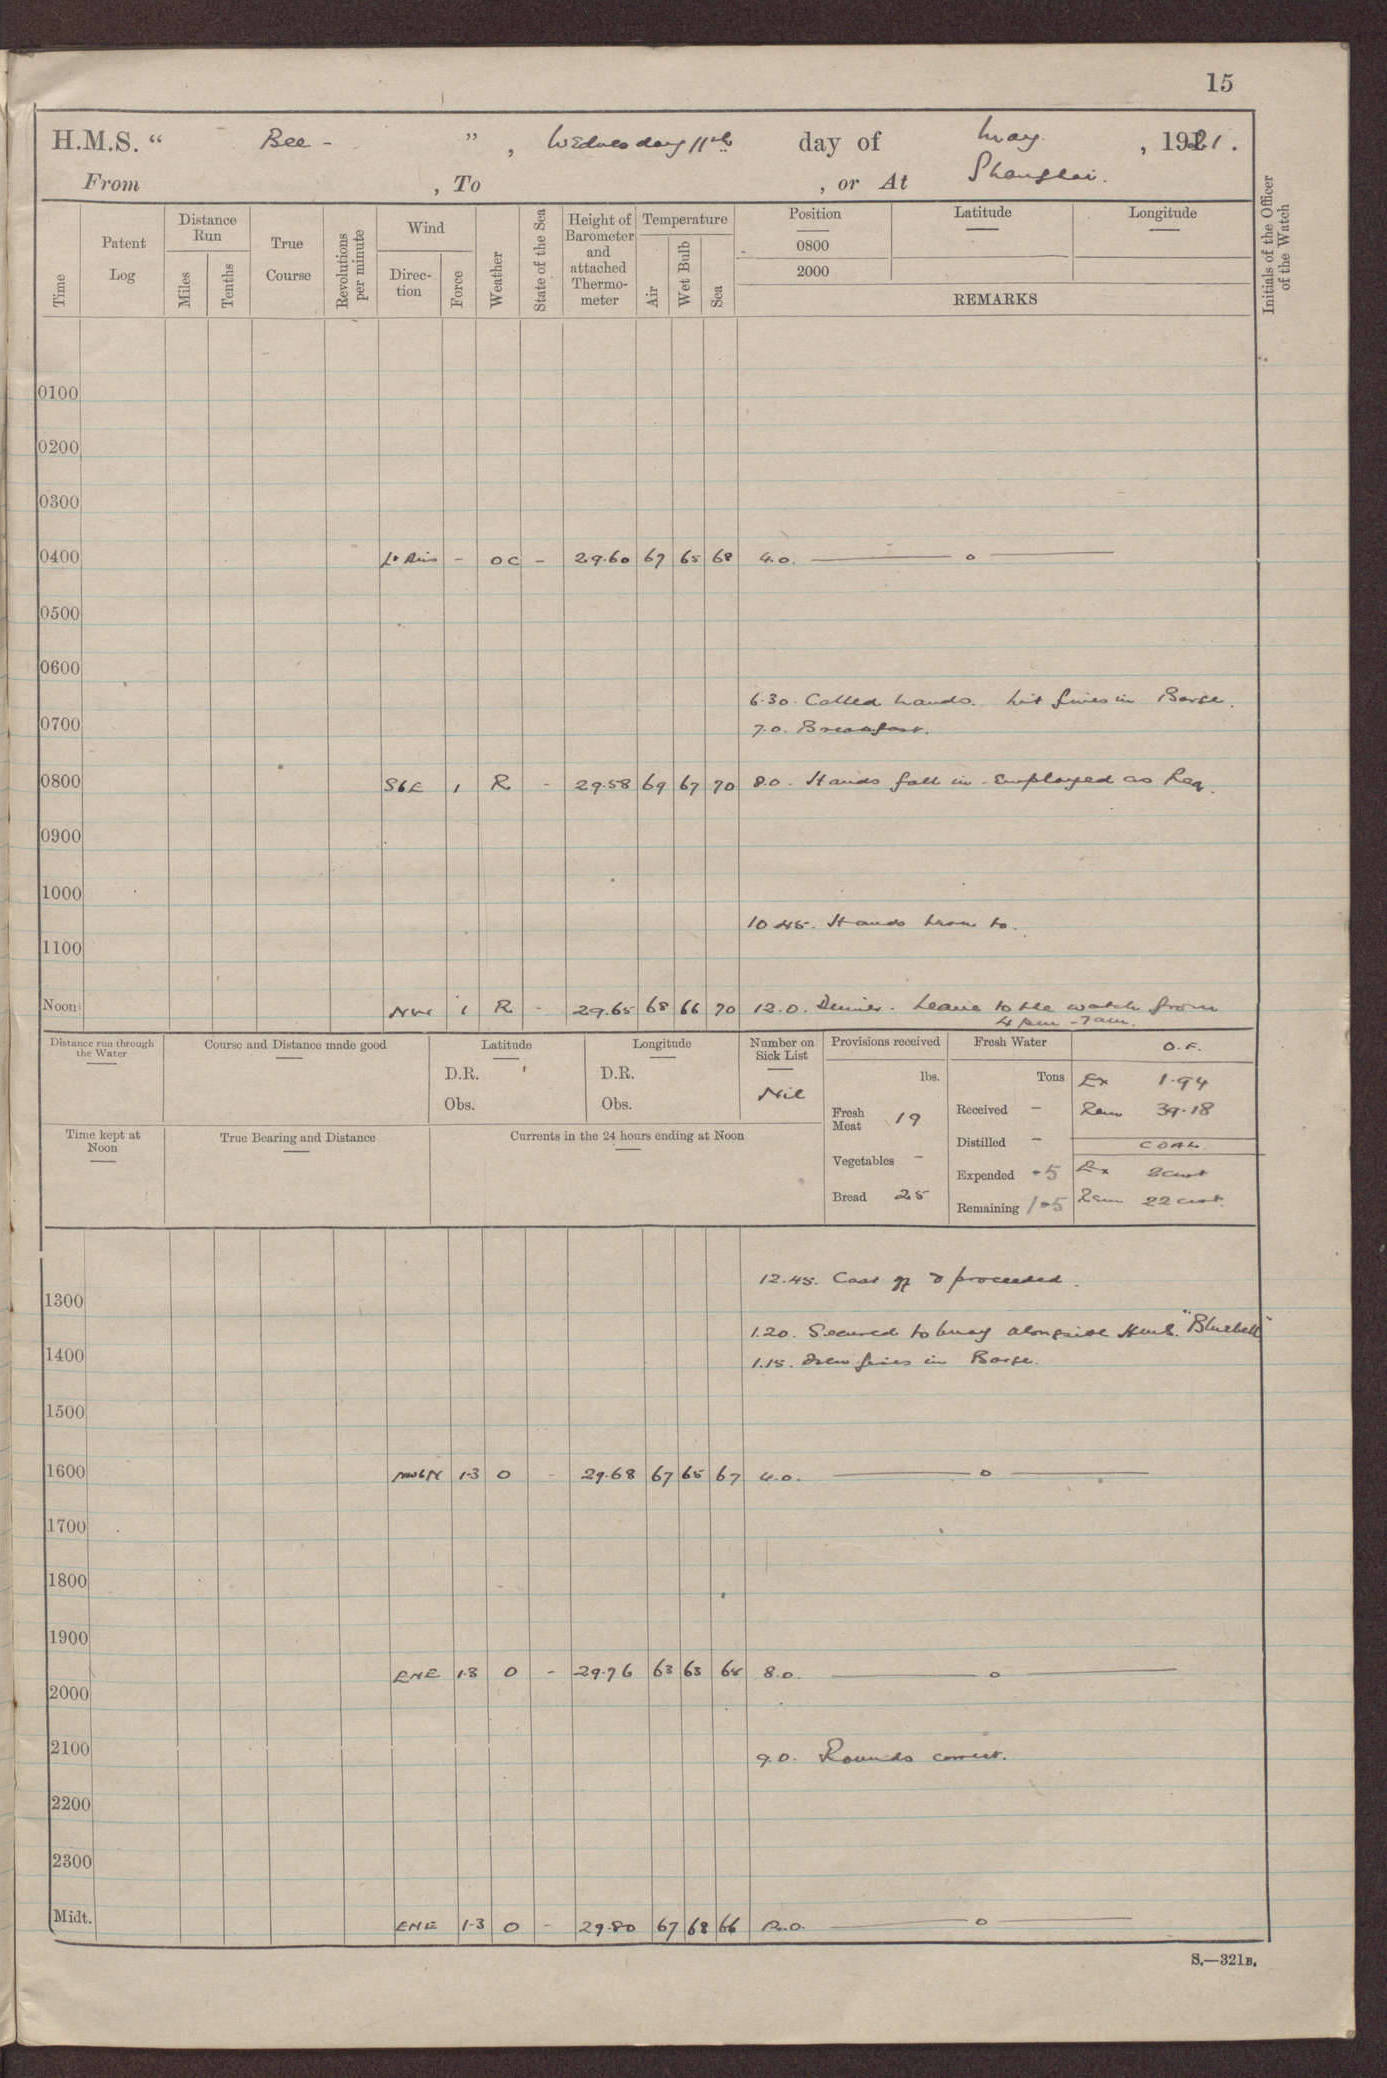 15
H.M.S. “ Bee - ” , Wednesday 11th day of May , 1921.
From , To , or At Shanghai.
Time Patent Log Distance Run Miles Tenths True Course Revolutions per minute Wind Direc-tion Force Weather State of the Sea Height of Barometer and attached Thermo-meter Temperature Air Wet Bulb Sea Position 0800 2000 Latitude Longitude REMARKS Initials of the Officer of the Watch
0100
0200
0300
0400 Lt Airs - OC - 29.60 67 65 68 4.0. o
0500
0600
6.30. Called hands. Lit fires in Barge.
0700 7.0. Breakfast.
0800 SbE 1 R - 29.58 69 67 70 8.0. Hands fall in. Employed as Req.
0900
1000
10.45. Hands to.
1100
Noon NW 1 R - 29.65 68 66 70 12.0. Dinner. Leave to the watch from
4 pm - 7 am.
Distance run through the Water Course and Distance made good Latitude Longitude Number on Sick List Provisions received Fresh Water O.F.
D.R. D.R. Nil lbs. Tons Ex 1.94
Obs. Obs. Fresh Meat 19 Received - Rem 39.18
Time kept at Noon True Bearing and Distance Currents in the 24 hours ending at Noon Distilled - COAL
Vegetables - Expended .5 Ex 2 cwt
Bread 25 Remaining Rem 22 cwt.
12.45. Cast off & proceeded.
1300
1.20. Secured to buoy alongside H.M.S. "Bluebell"
1400 1.15. Drew fires in Barge.
1500
1600 NWbN 1-3 O - 29.68 67 65 67 4.0. o
1700
1800
1900
ENE 1-3 O - 29.76 63 63 64 8.0. o
2000
2100 9.0. Rounds correct.
2200
2300
Midt. ENE 1-3 O - 29.80 67 68 66 o
S.—321B.